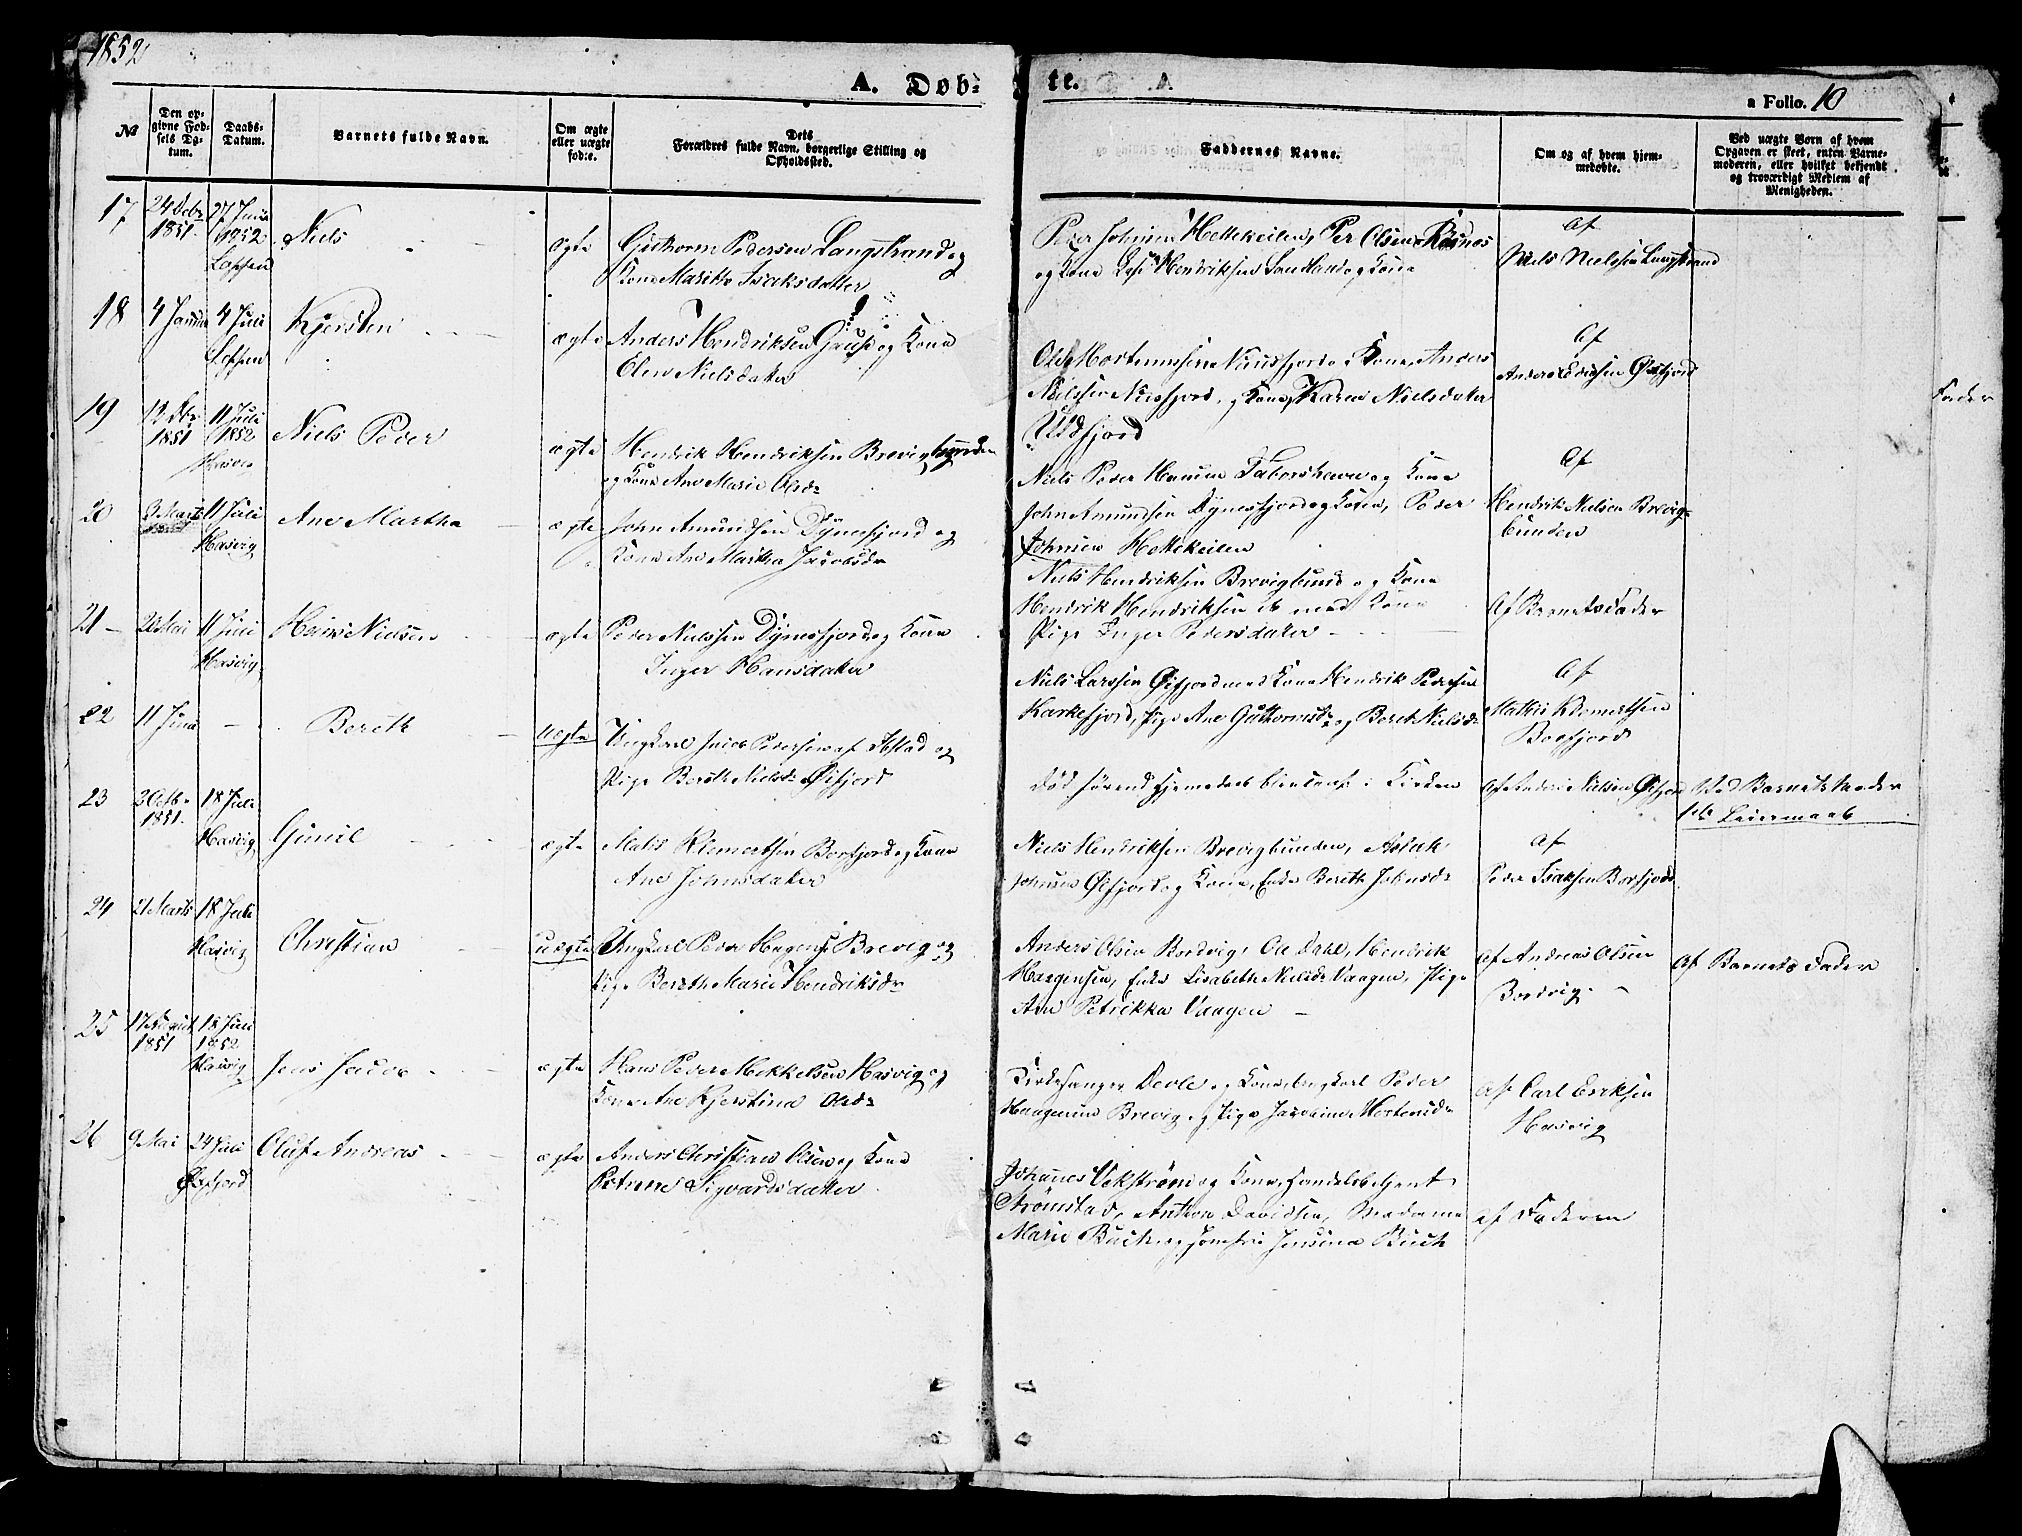 1852
A. Døb-
te.
a Folio. 10
№
Den op-
givne Fød-
sels Da-
tum.
Daabs-
Datum.
Barnets fulde Navn.
Om ægte
eller uægte
fød:e.
Dets
Forældres fulde Navn, borgerlige Stilling og
Opholdssted.
Faddernes Navne.
Om og af hvem hjem-
medøbte.
Ved uægte Børn af hvem
Opgaven er skeet, enten Barne-
moderen, eller hvilket bekjendt
og troværdigt Medlem af
Menigheden.
17
24 Decbr
1851
27 Juni
1852
Loppen
Niels
ægte
Guthorm Pedersen Langstrand og
Kone Marithe Isaksdatter
Peder Johnsen Hettekeilen, Per Olsen
og Kone Hendriksen Sandland og Kone
Af
Niels Nielsen Langstrand
18
4 Januar
4 Juli
Loppen
Kjersten
ægte
Anders Hendriksen og Kone
Elen Nielsdatter
Ole Mortensen Nuusfjord og Kone, Anders
Nielsen Nusfjord og Kone, Karen Nielsdatter
Ulsfjord
Af
Anders Øifjord
19
1851
11 Juli
1852
Hasvig
Niels Peder
ægte
Hendrik Hendriksen Brevigbunden
og Kone Ane Marie Olsdr
Niels Peder Hansen og Kone
John Amundsen Dynnesfjord og Kone, Peder
Johnsen Hettekeilen
Af
Hendrik Nielsen Brevig-
bunden
20
9 Marts
11 Juli
Hasvig
Ane Martha
ægte
John Amundsen Dynesfjord og
Kone Ane Martha Jacobsdr
Niels Hendriksen Brevigbund og Kone
Hendrik Hendriksen ib med Kone
Pige Inger Pedersdatter
Af Barnets Fader
21
20 Mai
11 Juli
Hasvig
Hans Nielsen
ægte
Peder Nielsen Dynesfjord og Kone
Inger Hansdatter
Niels Larssen Øifjord med Kone Hendrik Pedersen
Karkefjord, Pige Ane Guttormsdr og Bereth Nielsdr
Af
Mathis Klemetsen
Borfjord
22
11 Juni
Bereth
uægte
Ungkarl Pedersen af Ibstad og
Pige Bereth Nielsdr Øifjord
Død førend Hjemedaab blev Kirken
Af Anders Nielsen Øifjord
Ved Barnets Moder
1ste Leiermaal
23
3 Octb
1851
18 Juli
Hasvig
Gunil
ægte
Matis Klemetsen Borfjord og Kone
Ane Johnsdatter
Niels Hendriksen Brevigbunden, Aslak
Johnsen Øifjord og Kone, Enke Bereth Johnsdr
Af
Peder Isaksen Borfjord
24
21 Marts
18 Juli
Hasvig
Christian
uægte
Ungkarl Peder Hagensen Brevig og
Pige Bereth Marie Hendriksdr
Anders Olsen Bordvig, Ole Dahl, Hendrik
Haagensen, Enke Lisabeth Nielsdr Vaagen, Pige
Ane Petrikka Vaagen
Af Andreas Olsen
Bordvig
Af Barnets Fader
25
17 August
1851
18 Juli
1852
Hasvig
Jens Jacob
ægte
Hans Peder Mikkelsen Hasvig og
Kone Ane Kjerstina Olsdr
Kirkesanger Devle og Kone, Ungkarl Peder
Haagensen Brevig og Pige Jacobine Mortensdr
af Carl Eriksen
Hasvig
26
9 Mai
24 Juli
Øxfjord
Oluf Andreas
ægte
Anders Christian Olsen og Kone
Petrine Sigvardsdatter
Johanes Vekstrøm og Kone, Handelsbetjent
Strømstad, Anthon Davidsen, Madame
Marie Buck og Jomfru Jensine Buck
af Faderen
Fader